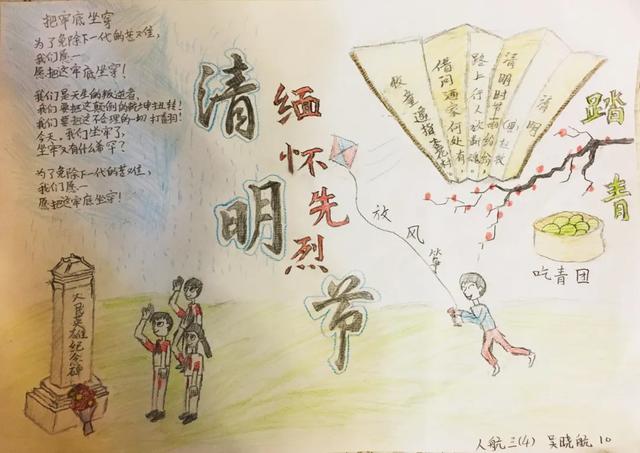 把牢底坐穿
为了免除下一代的苦难，
我们愿—
愿把这牢底坐穿！
我们是天生的叛逆者，
我们要把这颠倒的乾坤扭转！
我们要把这不合理的一切打翻！
今天，我们坐牢了，
坐牢又有什么希罕？
为了免除下一代的苦难，
我们愿—
愿把这牢底坐穿！
清明节
缅怀先烈
清明
杜牧
清明时节雨纷纷
路上行人欲断魂
借问酒家何处有
牧童遥指
踏青
放风筝
吃青团
人民英雄纪念碑
人航三(4) 吴晓航 10